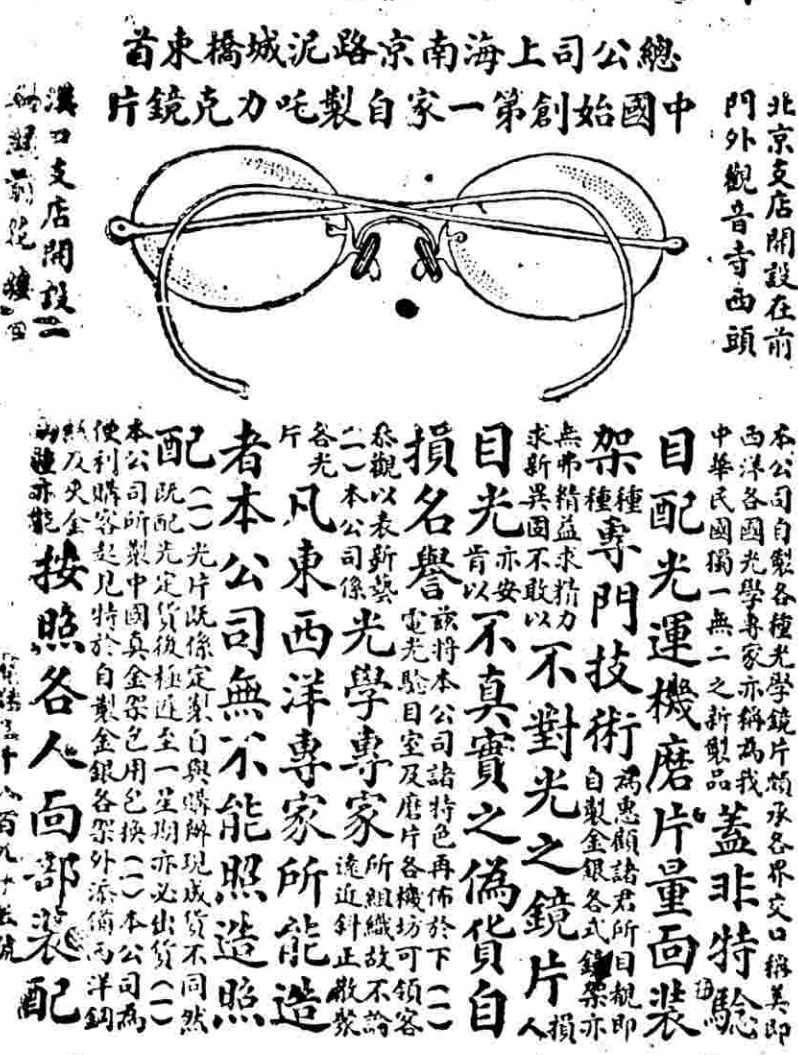 總公司上海南京路泥城橋東首
中國始創第一家自製吒力克鏡片
北京支店開設在前
門外觀音寺西頭
漢口支店開設二
本公司自製各種光學鏡片頗承各界交口稱美即
西洋各國光學專家亦稱為我
中華民國獨一無二之新製品蓋非特驗
目配光運機磨片量面裝
架種種專門技術為惠顧諸君所目覩即
自製金銀各式鏡架亦
無弗精益求精力
求新異固不敢以不對光之鏡片損人
目光亦安肯以不真實之偽貨自
損名譽茲將本公司諸特色再佈於下(一)
電光驗目室及磨片各機坊可領客
參觀以表新藝
(一)本公司係光學專家所組織故不論
遠近斜正散聚
各光片凡東西洋專家所能造
者本公司無不能照造照
配(一)光片既係定製自與購辦現成貨不同然
既配光定貨後極遲至一星期亦必出貨(一)
本公司所製中國真金架包用包換(一)本公司為
便利購客起見特於自製金銀各架外添備西洋鋼
絲及夾金
按照各人面部裝配